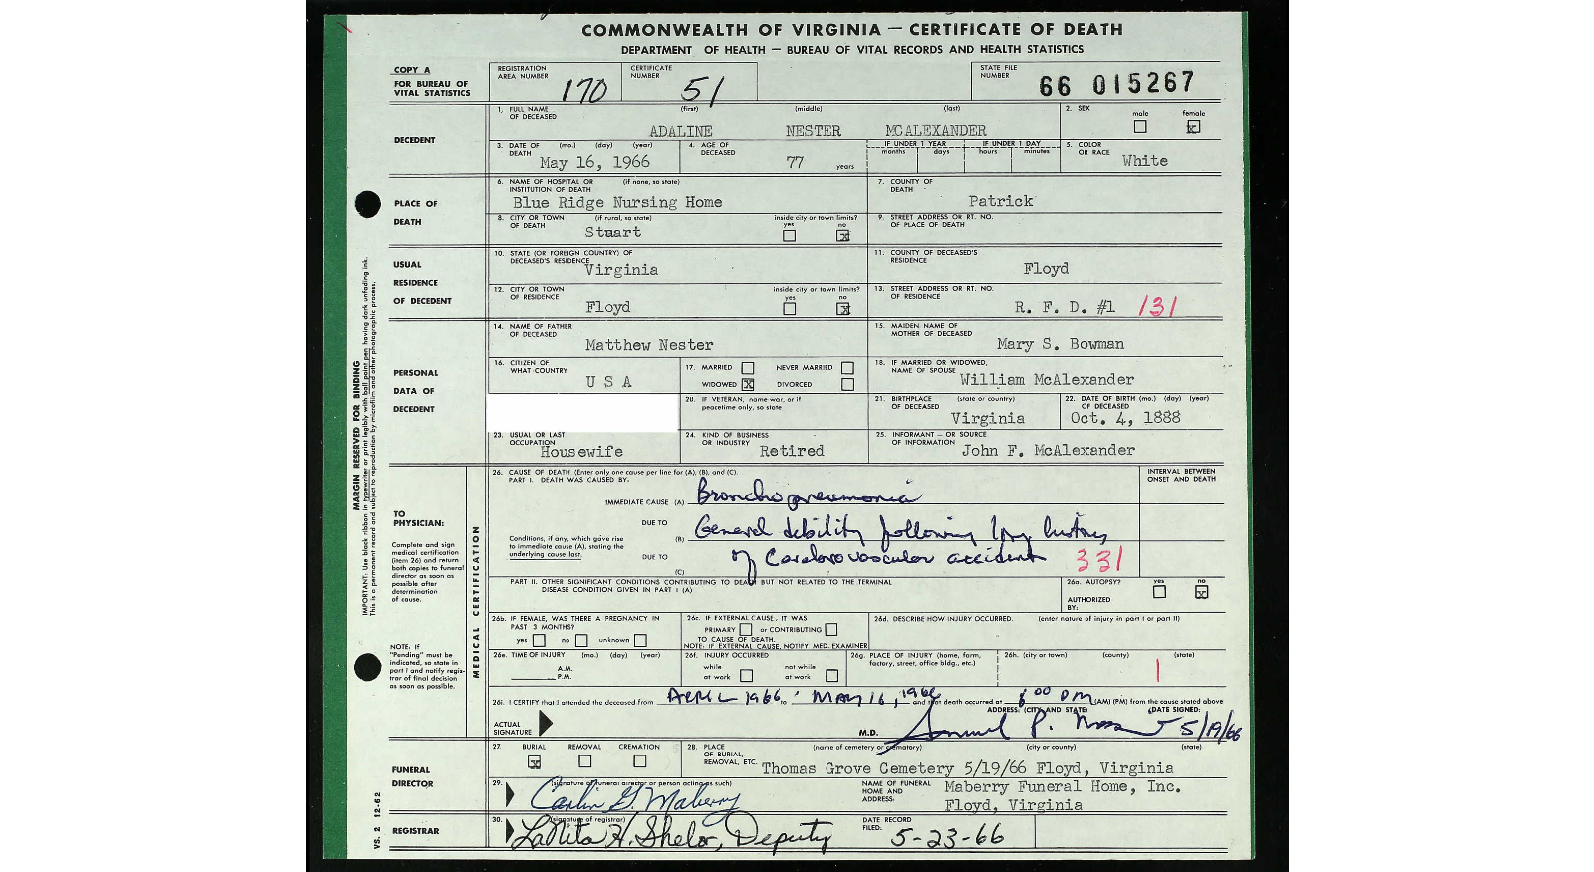 COMMONWEALTH OF VIRGINIA — CERTIFICATE OF DEATH
DEPARTMENT OF HEALTH — BUREAU OF VITAL RECORDS AND HEALTH STATISTICS
COPY A
FOR BUREAU OF
VITAL STATISTICS
REGISTRATION
AREA NUMBER 170
CERTIFICATE
NUMBER 51
STATE FILE
NUMBER 66 015267
DECEDENT
1. FULL NAME OF DECEASED (first) (middle) (last)
ADALINE NESTER MCALEXANDER
2. SEX male female x
3. DATE OF DEATH (mo.) (day) (year)
May 16, 1966
4. AGE OF DECEASED
77 years
IF UNDER 1 YEAR months days
IF UNDER 1 DAY hours minutes
5. COLOR OR RACE
White
PLACE OF
DEATH
6. NAME OF HOSPITAL OR INSTITUTION OF DEATH (if none, so state)
Blue Ridge Nursing Home
7. COUNTY OF DEATH
Patrick
8. CITY OR TOWN OF DEATH (if rural, so state)
Stuart
inside city or town limits? yes no x
9. STREET ADDRESS OR RT. NO. OF PLACE OF DEATH
USUAL
RESIDENCE
OF DECEDENT
10. STATE (OR FOREIGN COUNTRY) OF DECEASED'S RESIDENCE
Virginia
11. COUNTY OF DECEASED'S RESIDENCE
Floyd
12. CITY OR TOWN OF RESIDENCE
Floyd
inside city or town limits? yes no x
13. STREET ADDRESS OR RT. NO. OF RESIDENCE
R. F. D. #1 131
PERSONAL
DATA OF
DECEDENT
14. NAME OF FATHER OF DECEASED
Matthew Nester
15. MAIDEN NAME OF MOTHER OF DECEASED
Mary S. Bowman
16. CITIZEN OF WHAT COUNTRY
U S A
17. MARRIED NEVER MARRIED
WIDOWED X DIVORCED
18. IF MARRIED OR WIDOWED, NAME OF SPOUSE
William McAlexander
20. IF VETERAN, name war, or if peacetime only, so state
21. BIRTHPLACE OF DECEASED (state or country)
Virginia
22. DATE OF BIRTH (mo.) (day) (year) OF DECEASED
Oct. 4, 1888
23. USUAL OR LAST OCCUPATION
Housewife
24. KIND OF BUSINESS OR INDUSTRY
Retired
25. INFORMANT — OR SOURCE OF INFORMATION
John F. McAlexander
MARGIN RESERVED FOR BINDING
IMPORTANT: Use black ribbon in typewriter or print legibly with ball point pen having dark unfading ink.
This is a permanent record and subject to reproduction by microfilm and other photographic process.
TO
PHYSICIAN:
Complete and sign
medical certification
(item 26) and return
both copies to funeral
director as soon as
possible after
determination
of cause.
NOTE: IF
"Pending" must be
indicated, so state in
part I and notify regis-
trar of final decision
as soon as possible.
MEDICAL CERTIFICATION
26. CAUSE OF DEATH (Enter only one cause per line for (A), (B), and (C).
PART I. DEATH WAS CAUSED BY:
INTERVAL BETWEEN
ONSET AND DEATH
IMMEDIATE CAUSE (A) Bronchopneumonia
DUE TO
Conditions, if any, which gave rise
to immediate cause (A), stating the
underlying cause last.
(B) General debility following long history
DUE TO
(C) of Cerebrovascular accident 331
PART II. OTHER SIGNIFICANT CONDITIONS CONTRIBUTING TO DEATH BUT NOT RELATED TO THE TERMINAL
DISEASE CONDITION GIVEN IN PART I (A)
26a. AUTOPSY? yes no x
AUTHORIZED
BY:
26b. IF FEMALE, WAS THERE A PREGNANCY IN
PAST 3 MONTHS?
yes no unknown
26c. IF EXTERNAL CAUSE, IT WAS
PRIMARY or CONTRIBUTING
TO CAUSE OF DEATH.
NOTE: IF EXTERNAL CAUSE, NOTIFY MED. EXAMINER
26d. DESCRIBE HOW INJURY OCCURRED. (enter nature of injury in part I or part II)
26e. TIME OF INJURY (mo.) (day) (year)
A.M.
P.M.
26f. INJURY OCCURRED
while at work not while at work
26g. PLACE OF INJURY (home, farm,
factory, street, office bldg., etc.)
26h. (city or town) (county) (state)
26i. I CERTIFY that I attended the deceased from APRIL 1966 to MAY 16, 1966 and that death occurred at 00 PM (AM) (PM) from the cause stated above
ACTUAL
SIGNATURE
M.D.
ADDRESS: (CITY AND STATE) (DATE SIGNED:
Samuel P. 5/19/66
FUNERAL
DIRECTOR
27. BURIAL x REMOVAL CREMATION
28. PLACE OF BURIAL, REMOVAL, ETC. (name of cemetery or crematory) (city or county) (state)
Thomas Grove Cemetery 5/19/66 Floyd, Virginia
29. (signature of funeral director or person acting as such)
Carlin G. Maberry
NAME OF FUNERAL
HOME AND
ADDRESS:
Maberry Funeral Home, Inc.
Floyd, Virginia
REGISTRAR
30. (signature of registrar)
LaNita H. Shelor, Deputy
DATE RECORD
FILED: 5-23-66
VS. 2 12-62